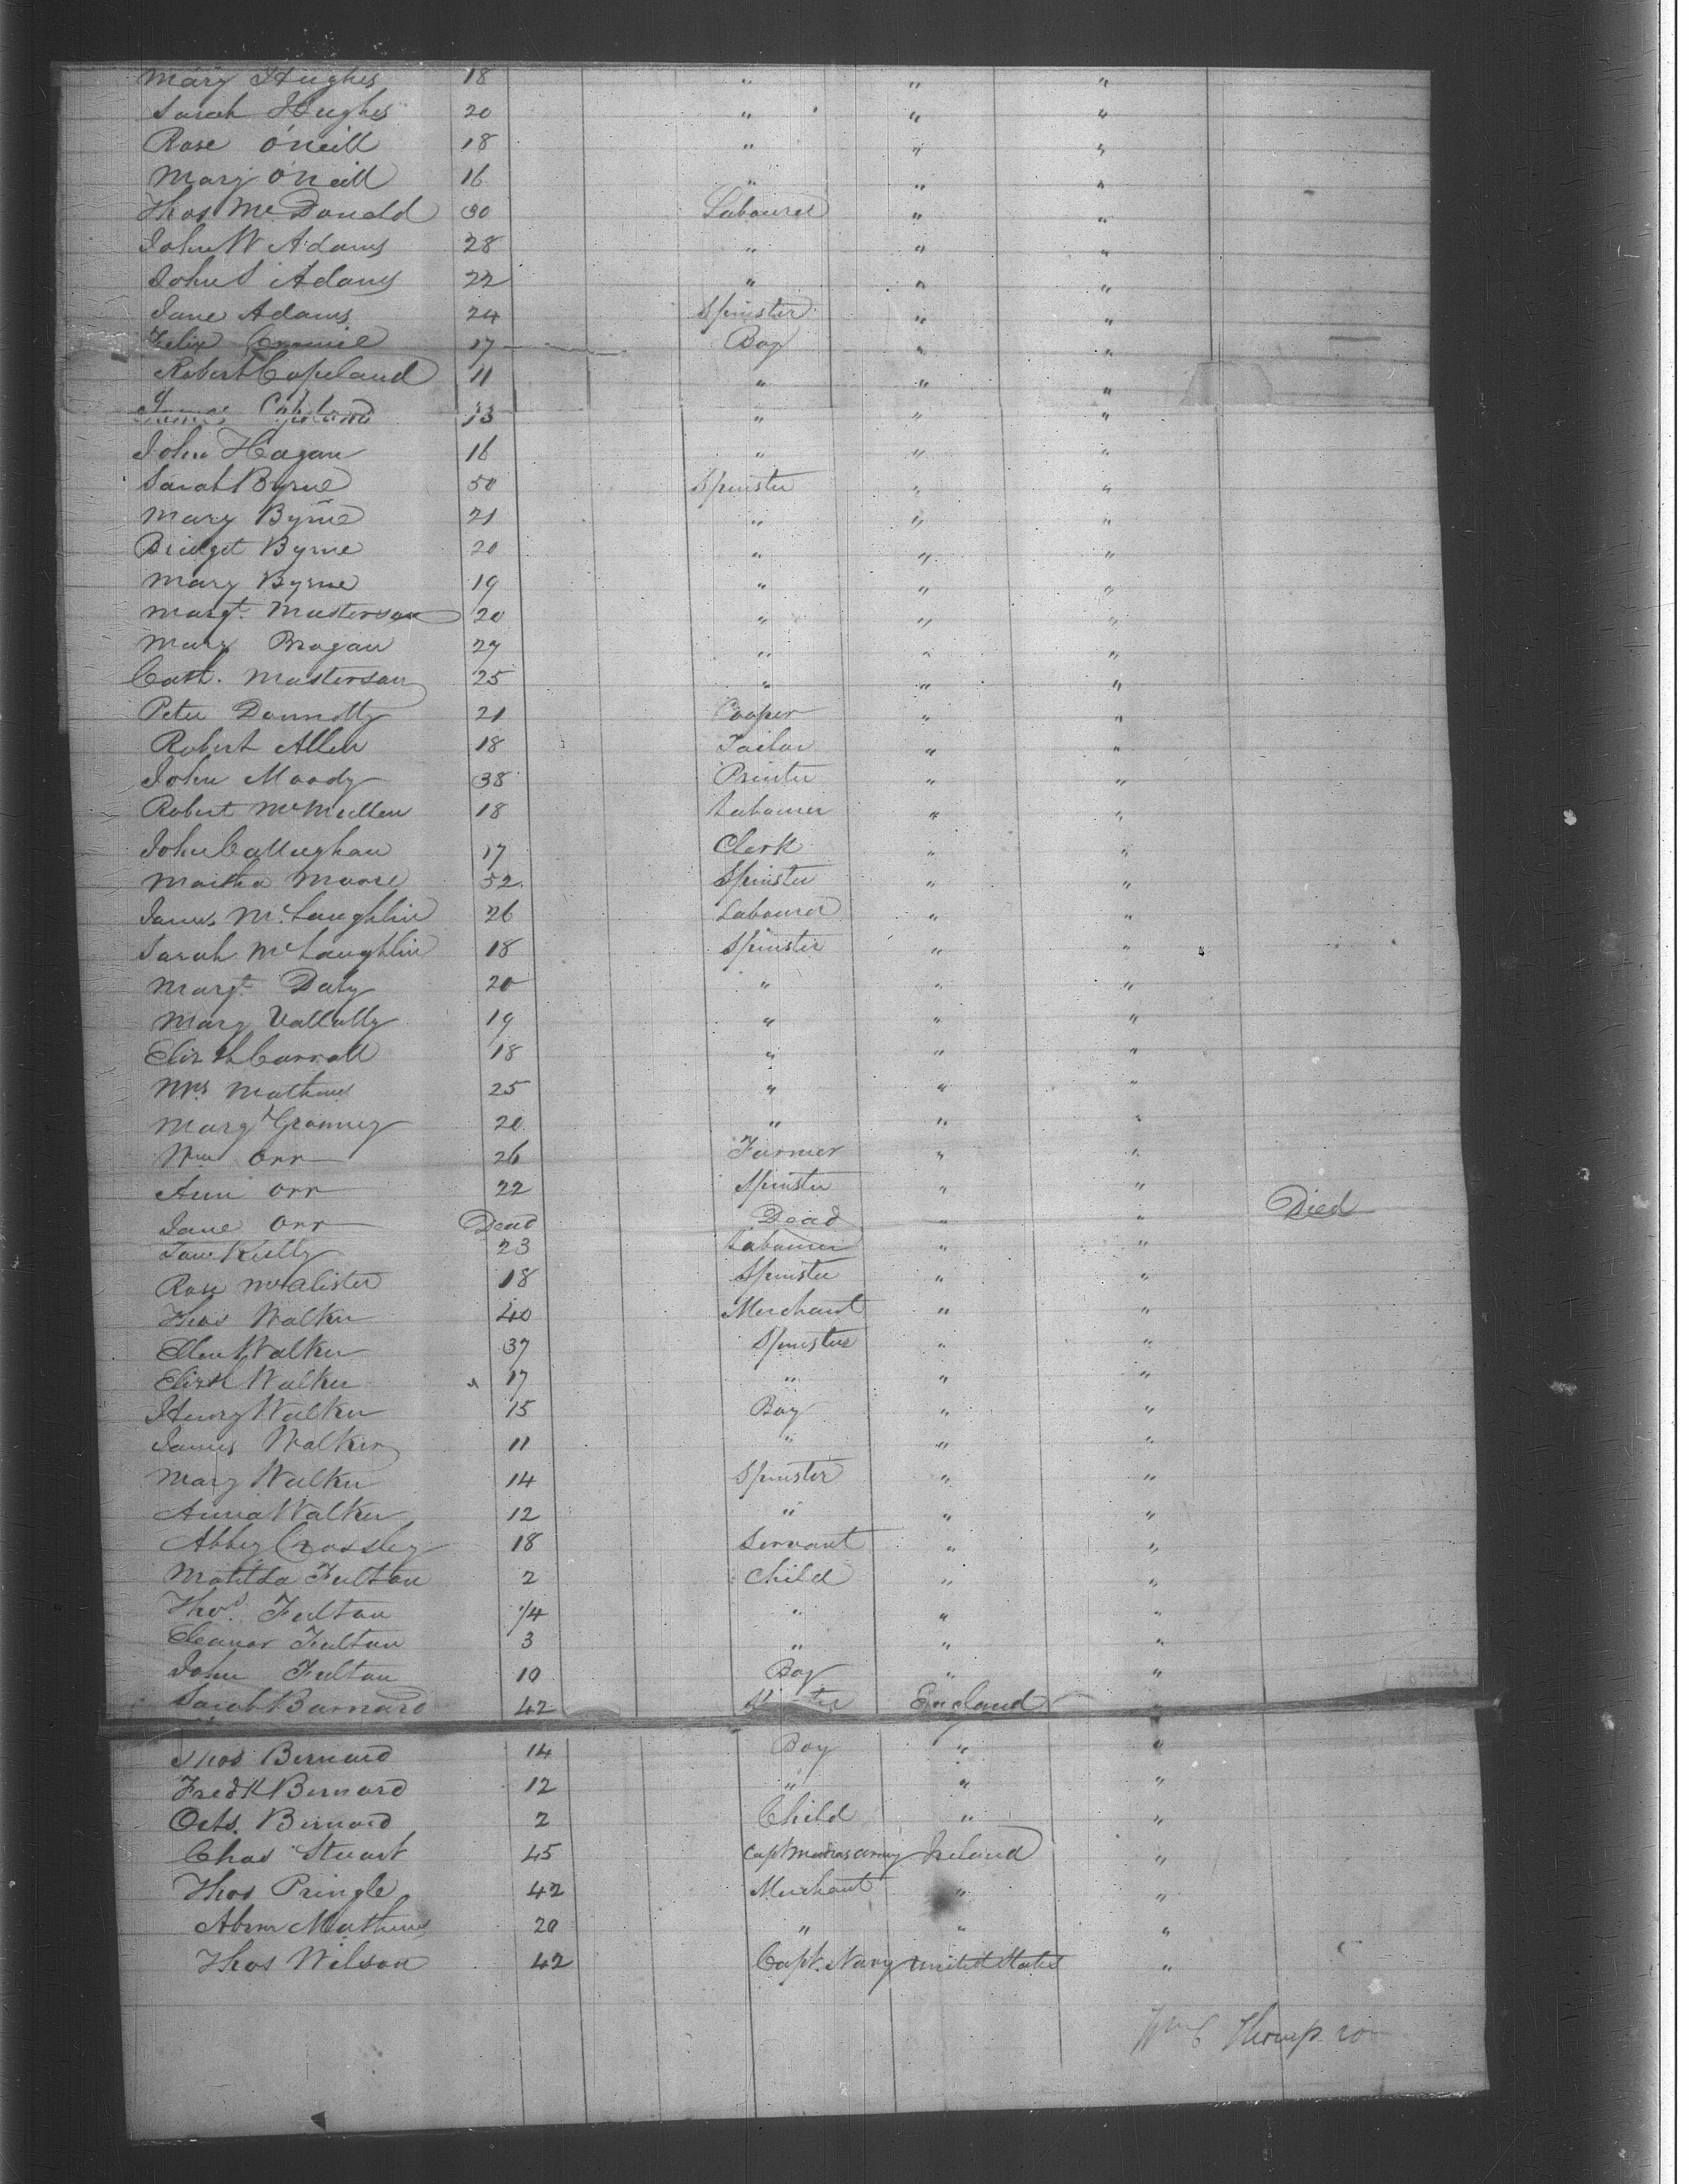 Mary Hughes 18 " " "
Sarah Hughes 20 " " "
Rose O'Neill 18 " " "
Mary O'Neill 16 " " "
Thos McDonald 30 Labourer " "
John W Adams 28 " " "
John S Adams 22 " " "
Jane Adams 24 Spinster " "
Felix 17 Boy " "
Robert Copeland 11 " " "
James Copeland 13 " " "
John Hagan 16 " " "
Sarah Byrne 50 Spinster " "
Mary Byrne 21 " " "
Bridget Byrne 20 " " "
Mary Byrne 19 " " "
Margt. Masterson 20 " " "
Mary Brogan 27 " " "
Cath. Masterson 25 " " "
Peter Donnolly 21 Cooper " "
Robert Allen 18 Tailor " "
John Moody 38 Printer " "
Robert McMullen 18 Labourer " "
John Callaghan 17 Clerk " "
Martha Moore 52 Spinster " "
James McLaughlin 26 Labourer " "
Sarah McLaughlin 18 Spinster " "
Margt. Daly 20 " " "
Mary Vallally 19 " " "
Elizth Carroll 18 " " "
Mrs Mathews 25 " " "
Margt Granney 20 " " "
Wm Orr 26 Farmer " "
Ann Orr 22 Spinster " "
Jane Orr Dead Dead " " Died
Kelly 23 Labourer " "
Rose McAlister 18 Spinster " "
Thos Walker 40 Merchant " "
Ellen Walker 37 Spinster " "
Elizth Walker 17 " " "
Henry Walker 15 Boy " "
James Walker 11 " " "
Mary Walker 14 Spinster " "
Anna Walker 12 " " "
Abbey Crossley 18 Servant " "
Matilda Fulton 2 Child " "
Thos. Fulton 1/4 " " "
Eleanor Fulton 3 " " "
John Fulton 10 Boy " "
Sarah Barnard 42 England "
Thos Bernard 14 Boy " "
Fredk Bernard 12 " " "
Octs. Bernard 2 Child " "
Chas Stuart 45 Capt Madras Army Ireland "
Thos Pringle 42 Merchant " "
Abrm Mathews 20 " " "
Thos Wilson 42 Capt. Navy United States "
Wm C Thompson